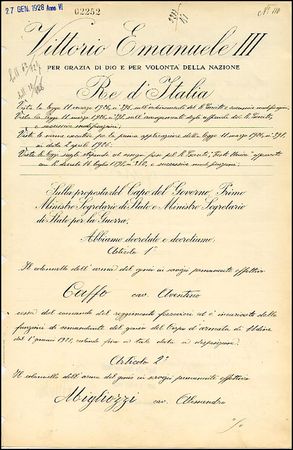 27 GEN. 1928 Anno VI
02252
N. 110
Vittorio Emanuele III
PER GRAZIA DI DIO E PER VOLONTÀ DELLA NAZIONE
Re d'Italia
Vista la legge 11 marzo 1926, n° 396, sull'ordinamento del R. Esercito e successive modificazioni;
Vista la legge 11 marzo 1926, n° 397, sull'avanzamento degli ufficiali del R. Esercito,
e successive modificazioni;
Viste le norme esecutive per la prima applicazione della legge 11 marzo 1926, n° 397,
in data 2 aprile 1926;
Vista la legge sugli stipendi ed assegni fissi pel R. Esercito, Testo Unico, approvato
con R. decreto 16 luglio e successive modificazioni;
Sulla proposta del Capo del Governo, Primo
Ministro Segretario di Stato e Ministro Segretario
di Stato per la Guerra;
Abbiamo decretato e decretiamo:
Articolo 1°
Il colonnello dell'arma del genio in servizio permanente effettivo
Caffo cav. Aventino
cessa dal comando del reggimento ferrovieri ed è incaricato delle
funzioni di comandante del genio del Corpo d'armata di Udine
dal 1° gennaio 1928, a disposizione;
Articolo 2°
Il colonnello dell'arma del genio in servizio permanente effettivo
Migliozzi cav. Alessandro